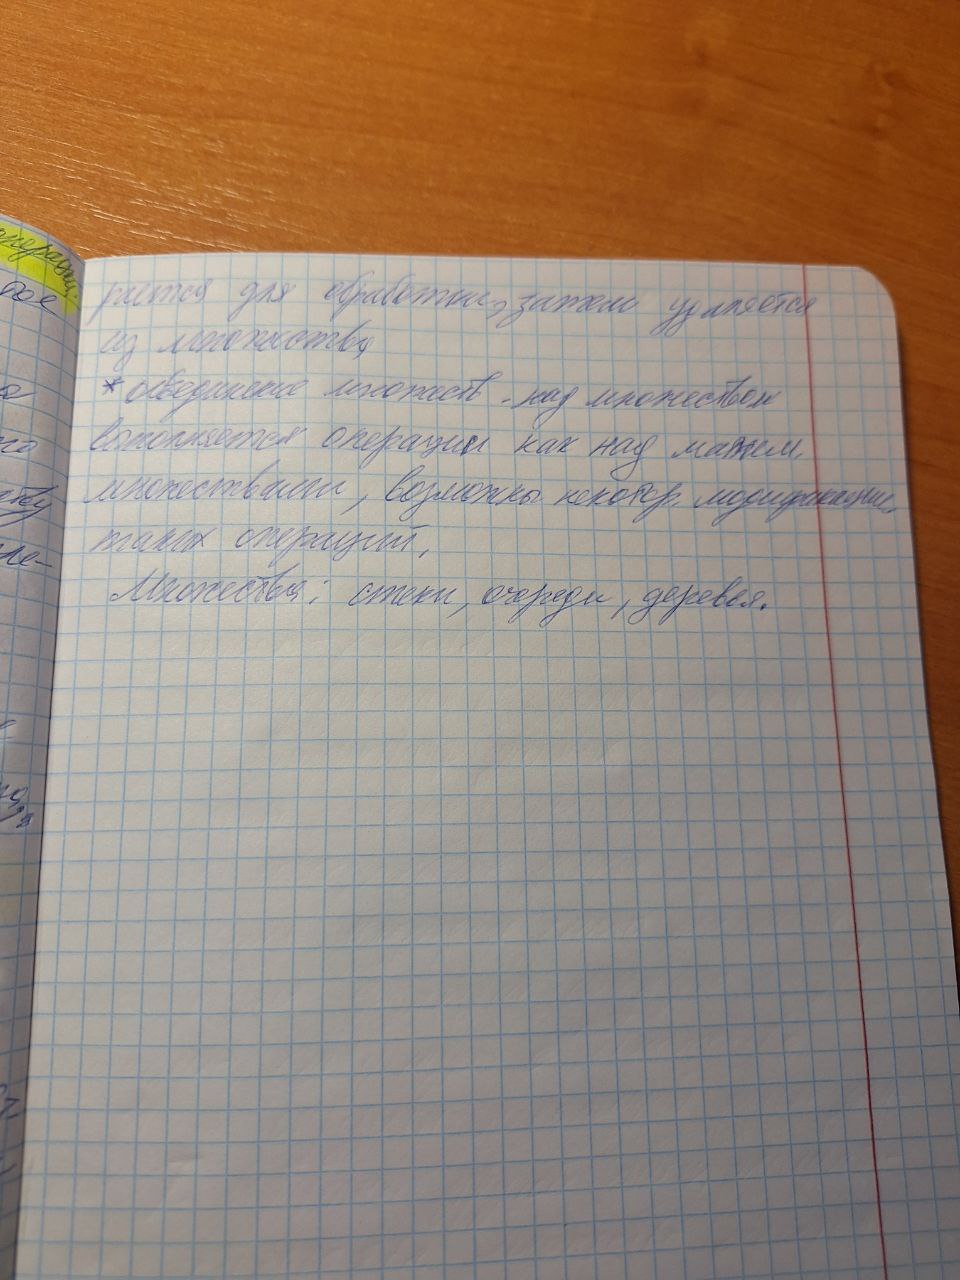 рается для обработки, затем удаляется
из множества
* объединение множеств - над множеством
выполняется операции как над матем.
множествами, возможны некотор. модификации
таких операций.
Множества: стеки, очереди, деревья.